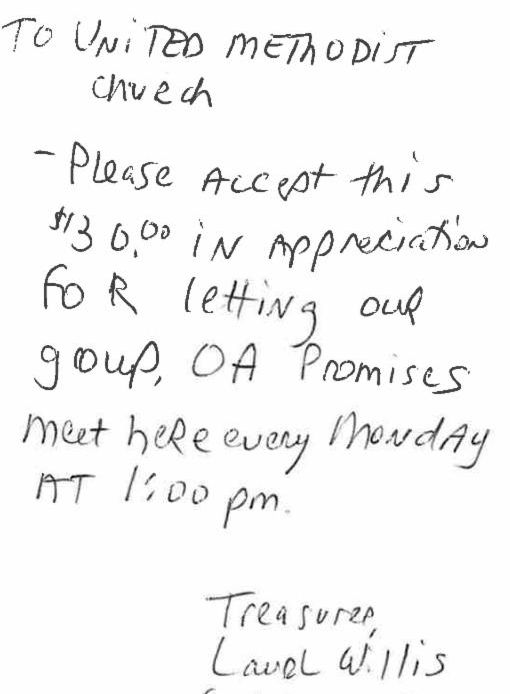 TO UNITED METHODIST
Church
- Please Accept this
$130.00 in Appreciation
FOR letting our
goup, OA Promises
Meet heRe every MondAy
AT 1:00 pm.
Treasurer,
Laurel Willis